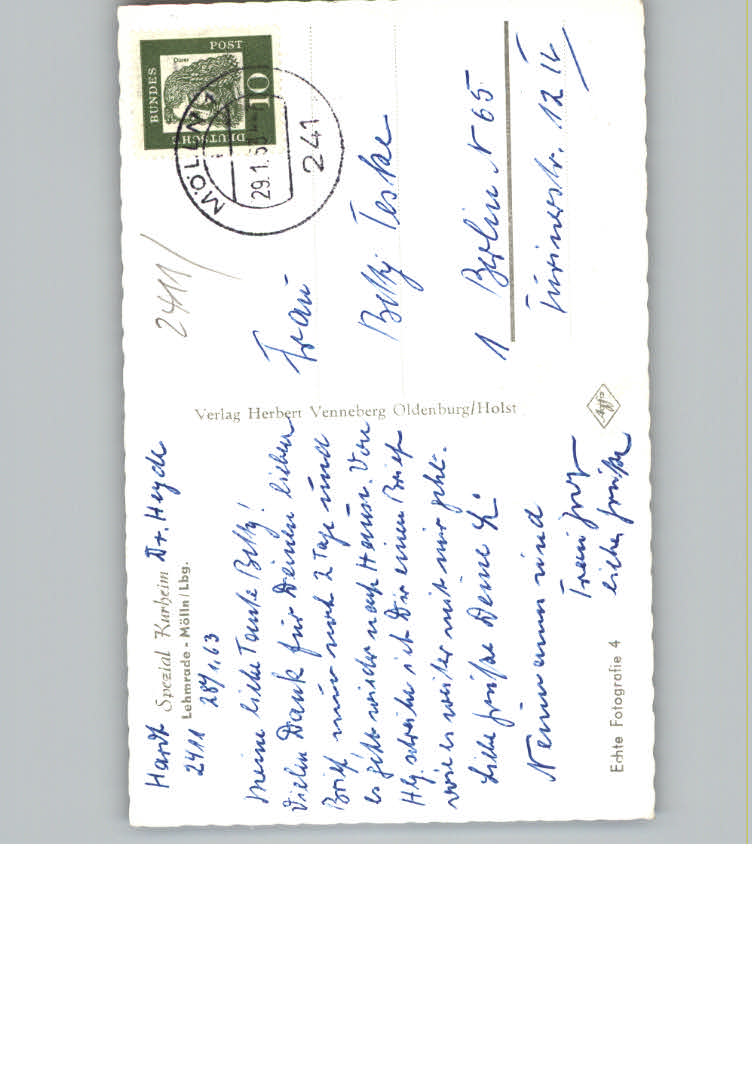 Hardt Spezial Kurheim Dr. Heyde
2411 Lehmrade - Mölln/Lbg.
28/1.63
Meine liebe Tante Betty!
Vielen Dank für Deinen lieben
Brief, nur noch 2 Tage und
es geht wieder nach Hause. Von
Hbg. schreibe ich Dir einen Brief
wie es weiter mit mir geht.
Liebe Grüße Deine
Neumann und
Frau
liebe Grüße
Echte Fotografie 4
Verlag Herbert Venneberg Oldenburg/Holst
Agfa
DEUTSCHE BUNDESPOST
Dürer
10
MÖLLN
29.1.63
241
2411
Frau
Betty Teske
1 Berlin N 65
Turinerstr. 12 IV